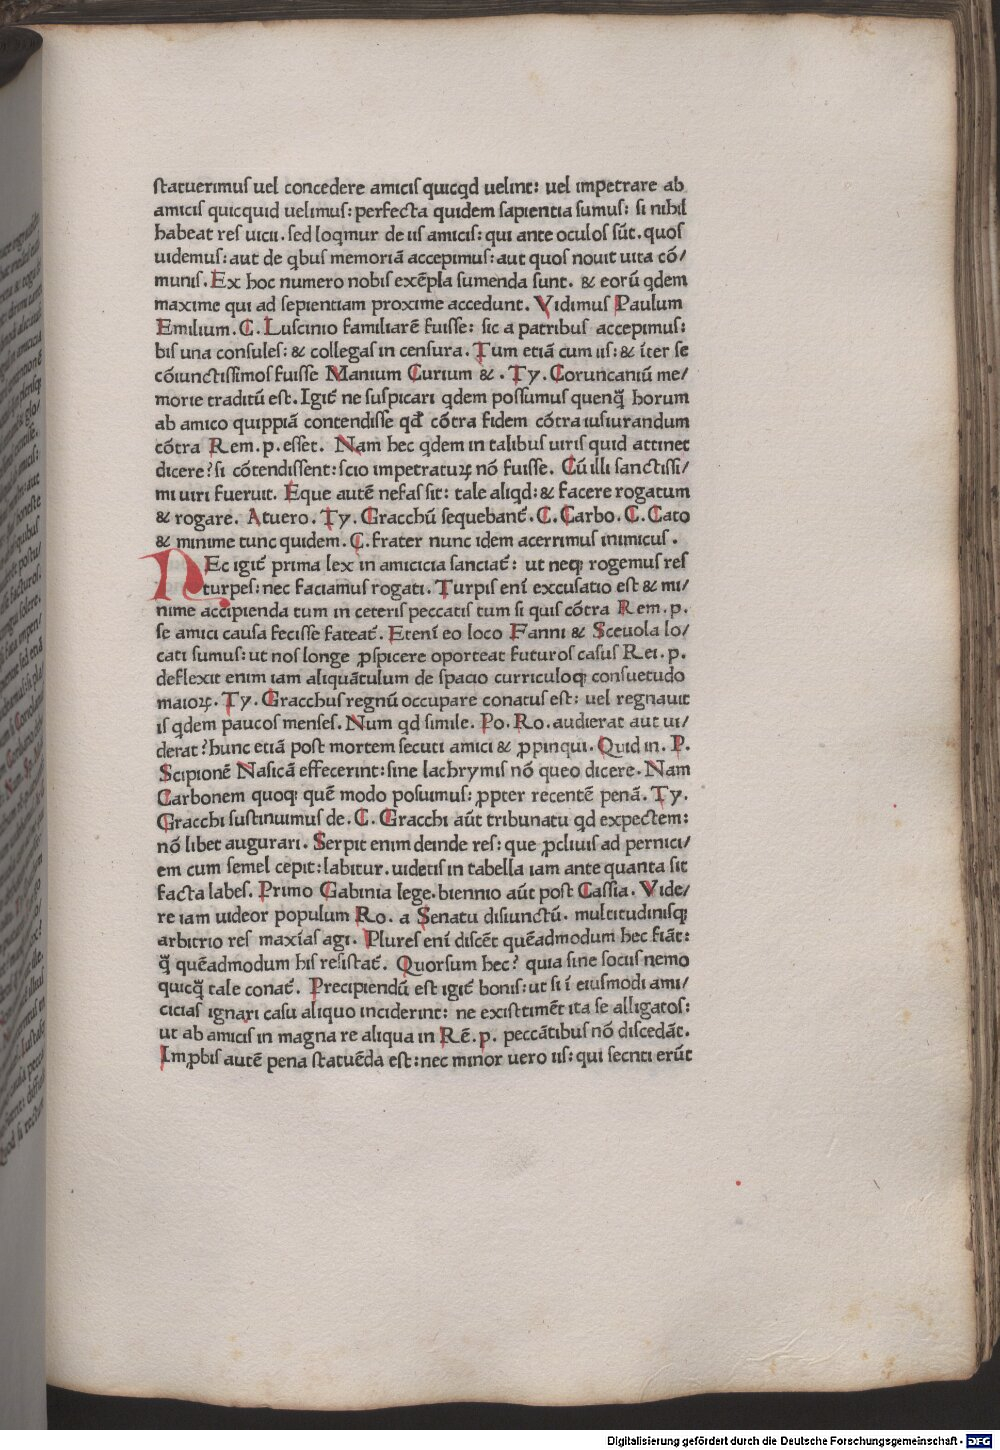 statuerimus uel concedere amicis quicqd uelint: uel impetrare ab
amicis quicquid uelimus: perfecta quidem sapientia sumus: si nihil
habeat res uicii. sed loqmur de iis amicis: qui ante oculos sūt. quos
uidemus: aut de qbus memoriā accepimus: aut quos nouit uita cō/
munis. Ex hoc numero nobis exēpla sumenda sunt. & eorū qdem
maxime qui ad sepientiam proxime accedunt. Vidimus Paulum
Emilium. C. Luscinio familiarē fuisse: sic a patribus accepimus:
bis una consules: & collegas in censura. Tum etiā cum iis: & īter se
cōiunctissimos fuisse Manium Curium &. Ty. Coruncaniū me/
morie traditū est. Igit̄ ne suspicari qdem possumus quenq̄ horum
ab amico quippiā contendisse qđ cōtra fidem cōtra iusiurandum
cōtra Rem. p. esset. Nam hec qdem in talibus uiris quid attinet
dicere? si cōtendissent: scio impetratuꝝ nō fuisse. Cū illi sanctissi/
mi uiri fuerūt. Eque autē nefas sit: tale aliqd: & facere rogatum
& rogare. Atuero. Ty. Gracchū sequebant̄. C. Carbo. C. Cato
& minime tunc quidem. C. frater nunc idem acerrimus inimicus.
HEc igit̄ prima lex in amicicia sanciat̄: ut neqꝫ rogemus res
turpes: nec faciamus rogati. Turpis enī excusatio est & mi/
nime accipienda tum in ceteris peccatis tum si quis cōtra Rem. p.
se amici causa fecisse fateat̄. Etenī eo loco Fanni & Sceuola lo/
cati sumus: ut nos longe ꝓspicere oporteat futuros casus Rei. p.
deflexit enim iam aliquātulum de spacio curriculoqꝫ consuetudo
maioꝝ. Ty. Gracchus regnū occupare conatus est: uel regnauit
is qdem paucos menses. Num qd simile. Po. Ro. audierat aut ui/
derat? hunc etiā post mortem secuti amici & ꝓpinqui. Quid in. P.
Scipionē Nasicā effecerint: sine lachrymis nō queo dicere. Nam
Carbonem quoqꝫ quē modo posuimus: ꝓpter recentē penā. Ty.
Gracchi sustinuimus de. C. Gracchi aūt tribunatu qd expectem:
nō libet augurari. Serpit enim deinde res: que ꝓcliuis ad pernici/
em cum semel cepit: labitur. uidetis in tabella iam ante quanta sit
facta labes. Primo Gabinia lege. biennio aūt post Cassia. Vide/
re iam uideor populum Ro. a Senatu disiunctū. multitudinisqꝫ
arbitrio res maxīas agi. Plures enī discēt quēadmodum hec fiāt:
q̄ quēadmodum his resistat̄. Quorsum hec? quia sine sociis nemo
quicq̄ tale conat̄. Precipiendū est igit̄ bonis: ut si ī eiusmodi ami/
cicias ignari casu aliquo inciderint: ne existimēt ita se alligatos:
ut ab amicis in magna re aliqua in Rē. p. peccātibus nō discedāt.
Imꝓbis autē pena statuēda est: nec minor uero iis: qui secnti erūt
Digitalisierung gefördert durch die Deutsche Forschungsgemeinschaft - DFG